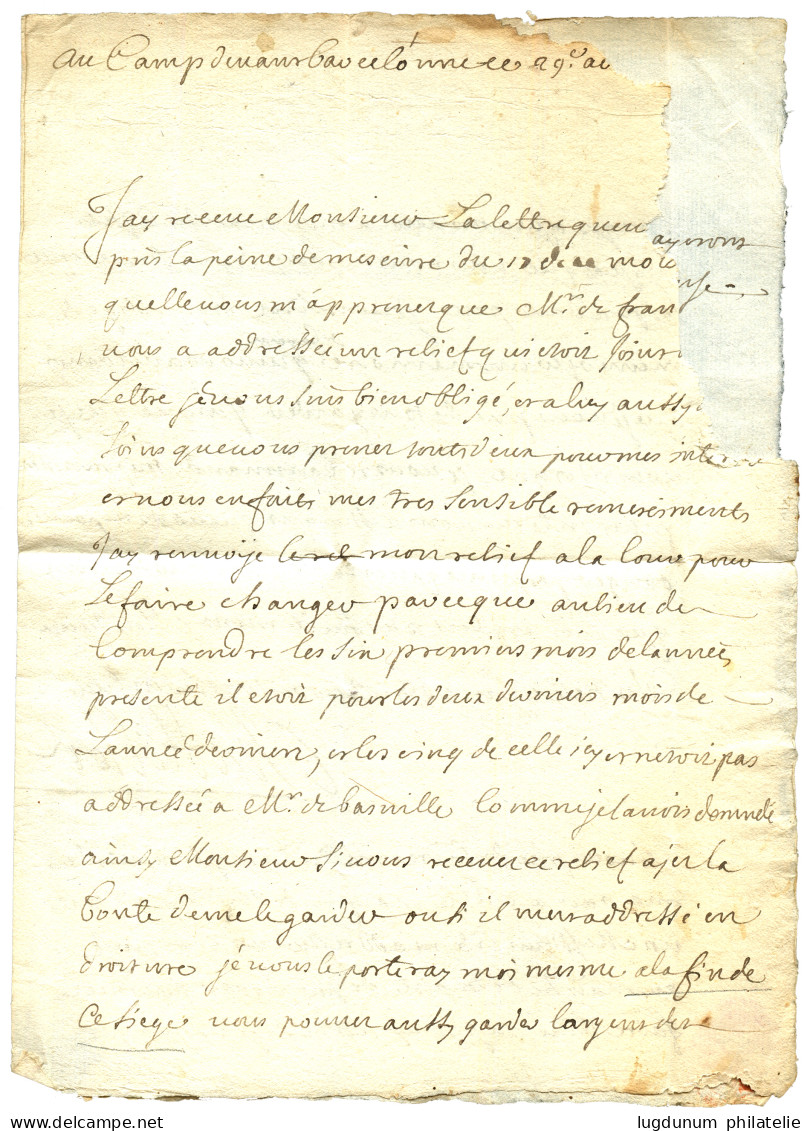 Au Camp devant Barcelonne ce 29e ao
Jay receue Monsieur La lettre que
ay vous
pris la peine de mescrire du 17 de ce moi
quelle vous m'apprener que Mr. de fran
vous a addressée un relief qui etoit Joint
Lettre je vous suis bien obligé, et a luy aussy
soins que vous prener touts deux pour mes inte
et vous en faits mes tres sensible remersiments
Jay renvoÿe mon relief a la Cour pour
Le faire changer parceque au lieu de
Comprendre les six premiers mois de lannée
presente il etoit pour les deux derniers mois de
Lanneé derniere, et les cinq de celle icy et netoit pas
addressée a Mr. de basville Comme je lavois demandé
ainsy Monsieur si vous receuer ce relief ajer la
bonté de me le garder ou si il mest addressé en
droiture je vous le porteray moi mesme a la fin de
Ce siege vous pouver aussy garder largent des
delcampe.net
lugdunum philatelie